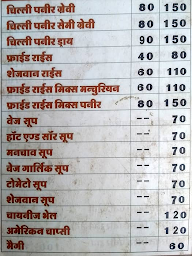 चिल्ली पनीर ग्रेवी 80 150
चिल्ली पनीर सेमी ग्रेवी 80 150
चिल्ली पनीर ड्राय 90 150
फ्राईड राईस 40 80
शेजवान राईस 60 110
फ्राईड राईस मिक्स मन्चुरियन 60 110
फ्राईड राईस मिक्स पनीर 80 150
वेज सूप -- 70
हॉट एण्ड सॉर सूप -- 70
मनचाव सूप -- 70
वेज गार्लिक सूप -- 70
टोमेटो सूप -- 70
शेजवान सूप -- 70
चायनीज भेल -- 120
अमेरिकन चाप्सी -- 120
मैगी -- 60